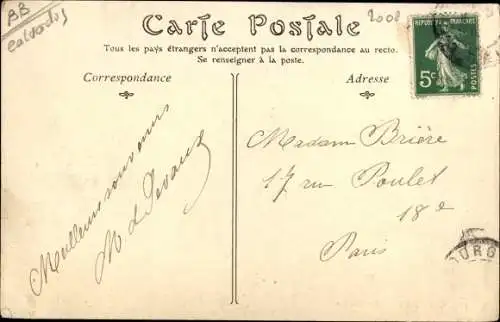 BB
calvados
2008
Carte Postale
Tous les pays étrangers n'acceptent pas la correspondance au recto.
Se renseigner à la poste.
Correspondance
Adresse
REPUBLIQUE FRANÇAISE
5c
POSTES
Meilleurs souvenirs
M L Devaux
Madam Brière
17 rue Poulet
18e
Paris
OURG